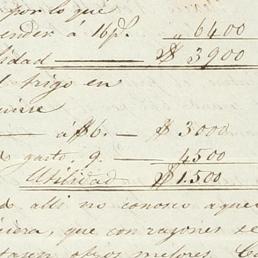 por lo que
ender á 16ps. " 6400
lidad $ 3900
trigo en
uiere
á $6. — $ 3000
gasto, 9. — 4500
Utilidad $ 1.500
alli no conosco aque
iera, que con razones se
tasen otros mejores.